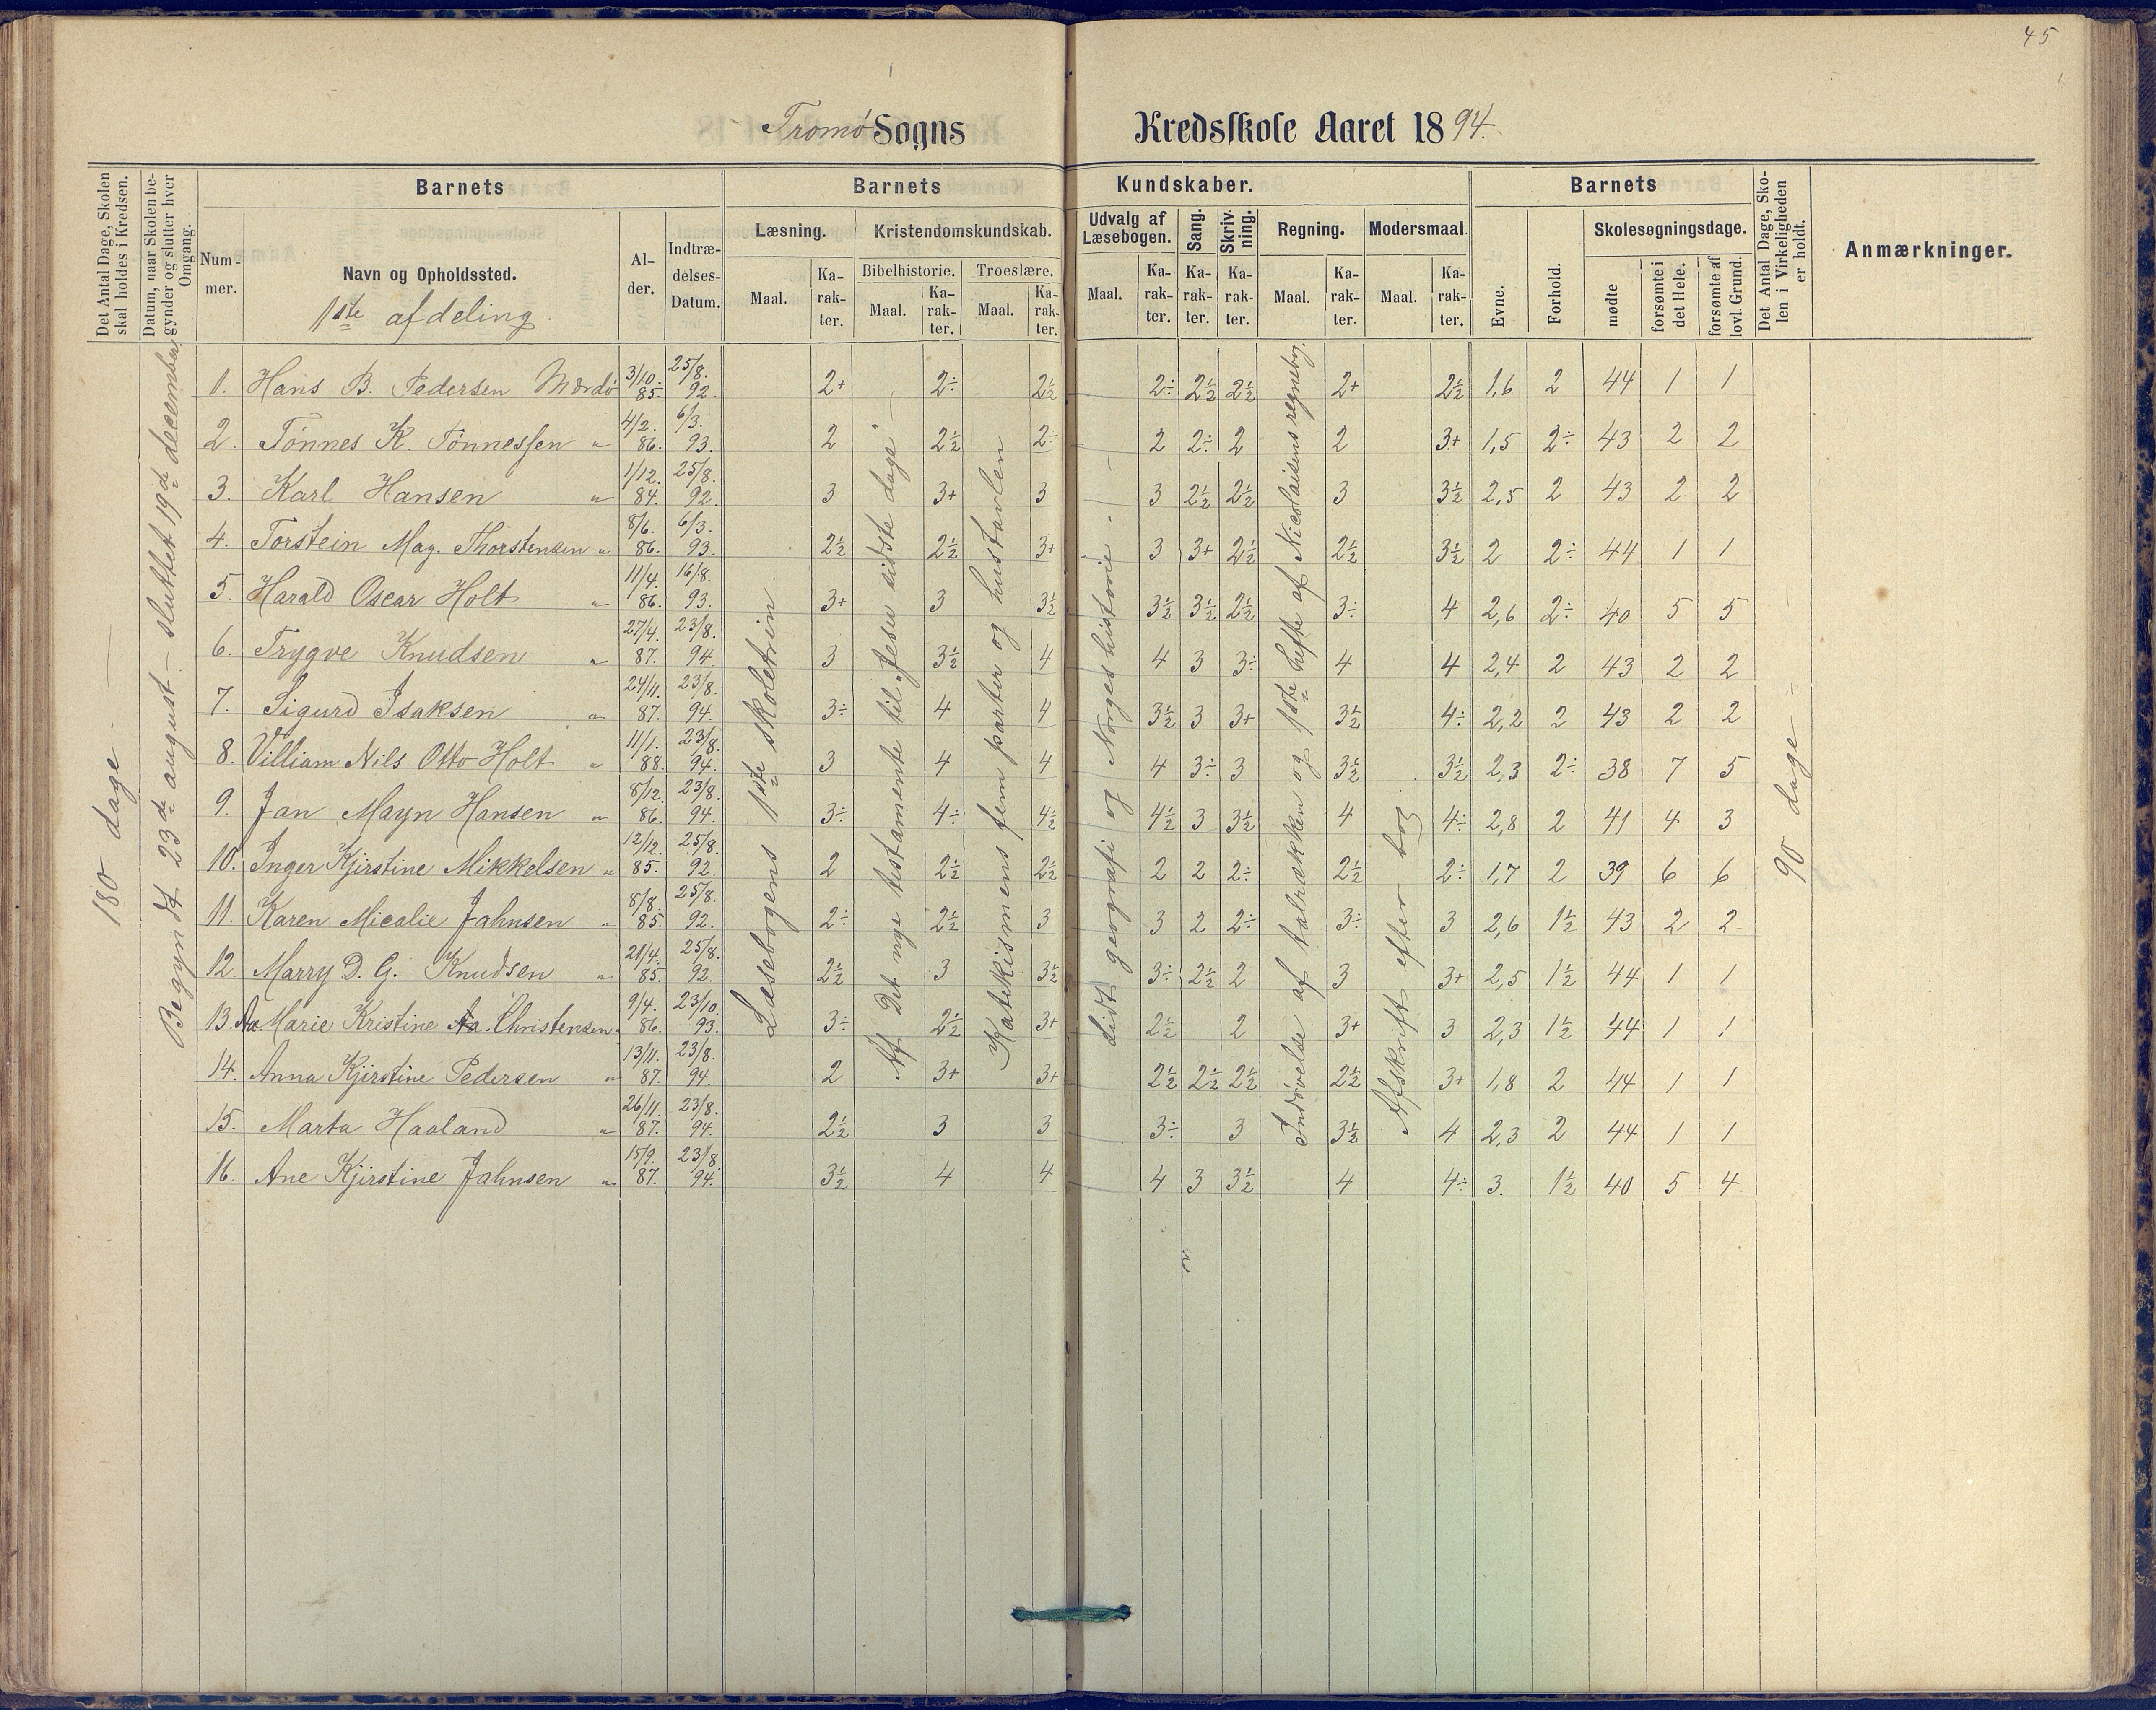 45
Tromø Sogns Kredsskole Aaret 1894.
Det Antal Dage, Skolen skal holdes i Kredsen.
Datum, naar Skolen begynder og slutter hver Omgang.
Barnets
Nummer.
Navn og Opholdssted.
1ste afdeling.
Alder.
Indtrædelses-Datum.
Barnets Kundskaber.
Læsning. Maal. Karakter.
Kristendomskundskab.
Bibelhistorie. Maal. Karakter.
Troeslære. Maal. Karakter.
Udvalg af Læsebogen. Maal. Karakter.
Sang. Karakter.
Skrivning. Karakter.
Regning. Maal. Karakter.
Modersmaal. Maal. Karakter.
Barnets
Evne.
Forhold.
Skolesøgningsdage.
mødte
forsømte i det Hele.
forsømte af lovl. Grund.
Det Antal Dage, Skolen i Virkeligheden er holdt.
Anmærkninger.
180 dage
Begyndt 23de august - sluttet 19de december
Læsebogens 1ste skoletrin
Af Det nye testamente til "Jesu sidste dage"
Katekismens fem parter og hustavlen
Lidt geografi og Norges historie
Indøvelse af talrækken og 1ste hefte af Nicolaisens regnebog.
Afskrift efter bog
90 dage
1. Hans B. Pedersen Mærdø 3/10. 85. 25/8. 92. 2+ 2÷ 2½ 2÷ 2½ 2½ 2+ 2½ 1,6 2 44 1 1
2. Tønnes K. Tønnessen " 4/2. 86. 6/3. 93. 2 2½ 2÷ 2 2÷ 2 2 3+ 1,5 2÷ 43 2 2
3. Karl Hansen " 1/12. 84. 25/8. 92. 3 3+ 3 3 2½ 2½ 3 3½ 2,5 2 43 2 2
4. Torstein Mag. Thorstensen " 8/6. 86. 6/3. 93. 2½ 2½ 3+ 3 3+ 2½ 2½ 3½ 2 2÷ 44 1 1
5. Harald Oscar Holt " 11/4. 86. 16/8. 93. 3+ 3 3½ 3½ 3½ 2½ 3÷ 4 2,6 2÷ 40 5 5
6. Trygve Knudsen " 27/4. 87. 23/8. 94 3 3½ 4 4 3 3÷ 4 4 2,4 2 43 2 2
7. Sigurd Isaksen " 24/11. 87. 23/8. 94. 3÷ 4 4 3½ 3 3+ 3½ 4÷ 2,2 2 43 2 2
8. Villiam Nils Otto Holt " 11/1. 88. 23/8. 94. 3 4 4 4 3÷ 3 3½ 3½ 2,3 2÷ 38 7 5
9. Jan Mayn Hansen " 8/12. 86. 23/8. 94. 3÷ 4÷ 4½ 4½ 3 3½ 4 4÷ 2,8 2 41 4 3
10. Inger Kjirstine Mikkelsen " 12/12. 85. 25/8. 92. 2 2½ 2½ 2 2 2÷ 2½ 2÷ 1,7 2 39 6 6
11. Karen Micalie Jahnsen " 8/8. 85. 25/8. 92. 2÷ 2½ 3 3 2 2÷ 3÷ 3 2,6 1½ 43 2 2
12. Marry D. G. Knudsen " 21/4. 85. 25/8. 92. 2½ 3 3½ 3÷ 2½ 2 3 3+ 2,5 1½ 44 1 1
13. Aa. Marie Kristine Aa. Christensen " 9/4. 86. 23/10. 93. 3÷ 2½ 3+ 2½ 2 3+ 3 2,3 1½ 44 1 1
14. Anna Kjirstine Pedersen " 13/11. 87. 23/8. 94. 2 3+ 3+ 2½ 2½ 2½ 2½ 3+ 1,8 2 44 1 1
15. Marta Haaland " 26/11. 87. 23/8. 94. 2½ 3 3 3÷ 3 3½ 4 2,3 2 44 1 1
16. Ane Kjirstine Jahnsen " 15/9. 87. 23/8. 94. 3½ 4 4 4 3 3½ 4 4÷ 3. 1½ 40 5 4.